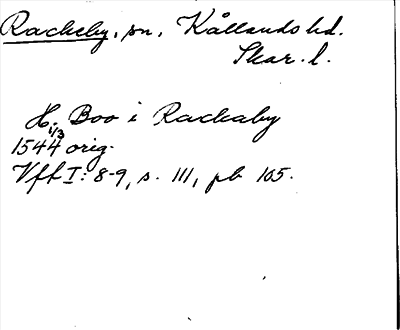 Rackeby, sn, Kållands hd.
Skar. l.
H. Boo i Rackaby
1544 1/3 orig.
Vfft I: 8-9, s. 111, pb 105.